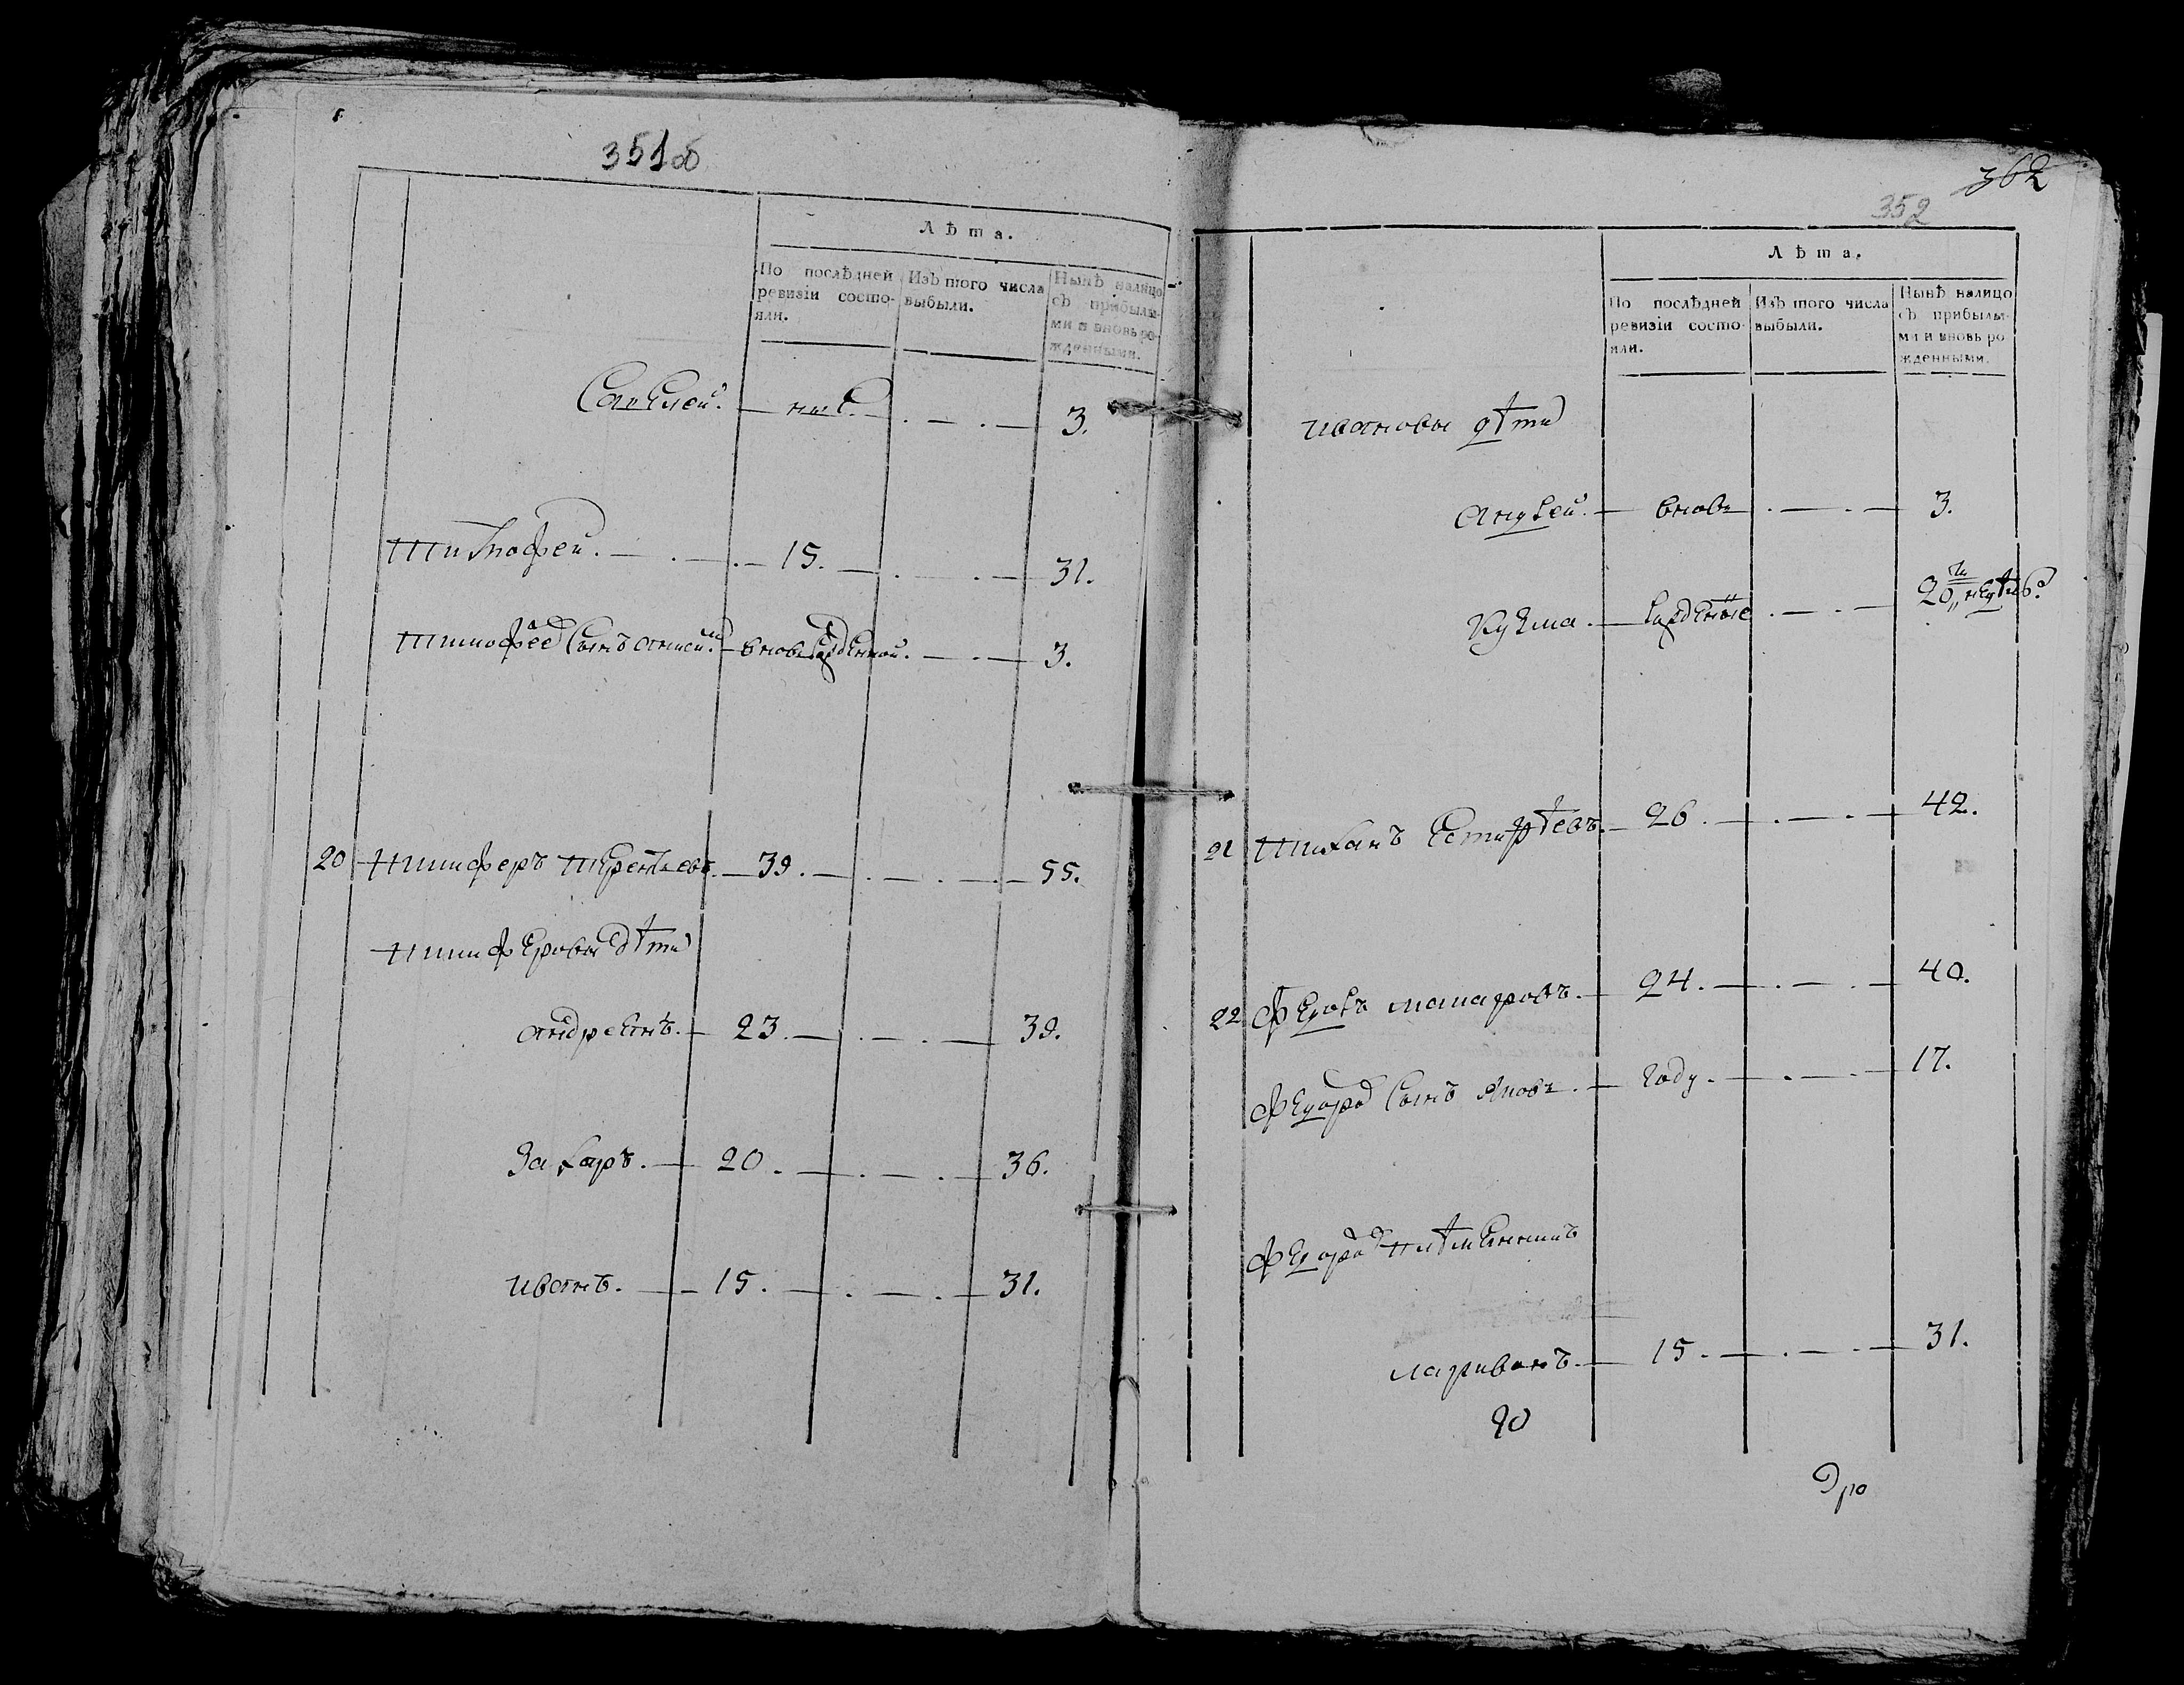 351об
Лѣта.
По послѣдней ревизіи состояли.
Изъ того числа выбыли.
Нынѣ налицо съ прибылыми и вновь рожденными.
Савелей. 3.
Тимофей. 15. 31.
Тимофеев сынъ вноврожденной. 3.
20 Никифоръ Терентьевъ. 39. 55.
Никифоровы дѣти
андреянъ. 23. 39.
Захаръ. 20. 36.
иванъ. 15. 31.
362
352
Лѣта.
По послѣдней ревизіи состояли.
Изъ того числа выбыли.
Нынѣ налицо съ прибылыми и вновь рожденными.
ивановы дѣти
андрей. вновь 3.
Кузма. рожденые 20 недѣль
21 Тиханъ Естифѣевъ. 26. 42.
22 Федоръ макаровъ. 24. 40.
Федоров сынъ яковъ. году. 17.
Федоров племянникъ
ларивонъ. 15. 31.